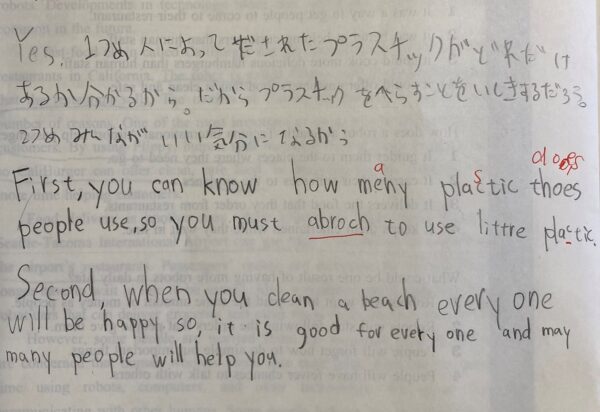 Yes, 1つめ 人によって だされた プラスチックが どれだけ
あるか分かるから。だから プラスチックをへらすことをいしきするだろう。
2つめ みんなが いい気分になるから
a s does
First, you can know how meny plactic thoes
people use, so you must abroch to use littre platic.
Second, when you clean a beach every one
will be happy so, it is good for every one and may
many people will help you.